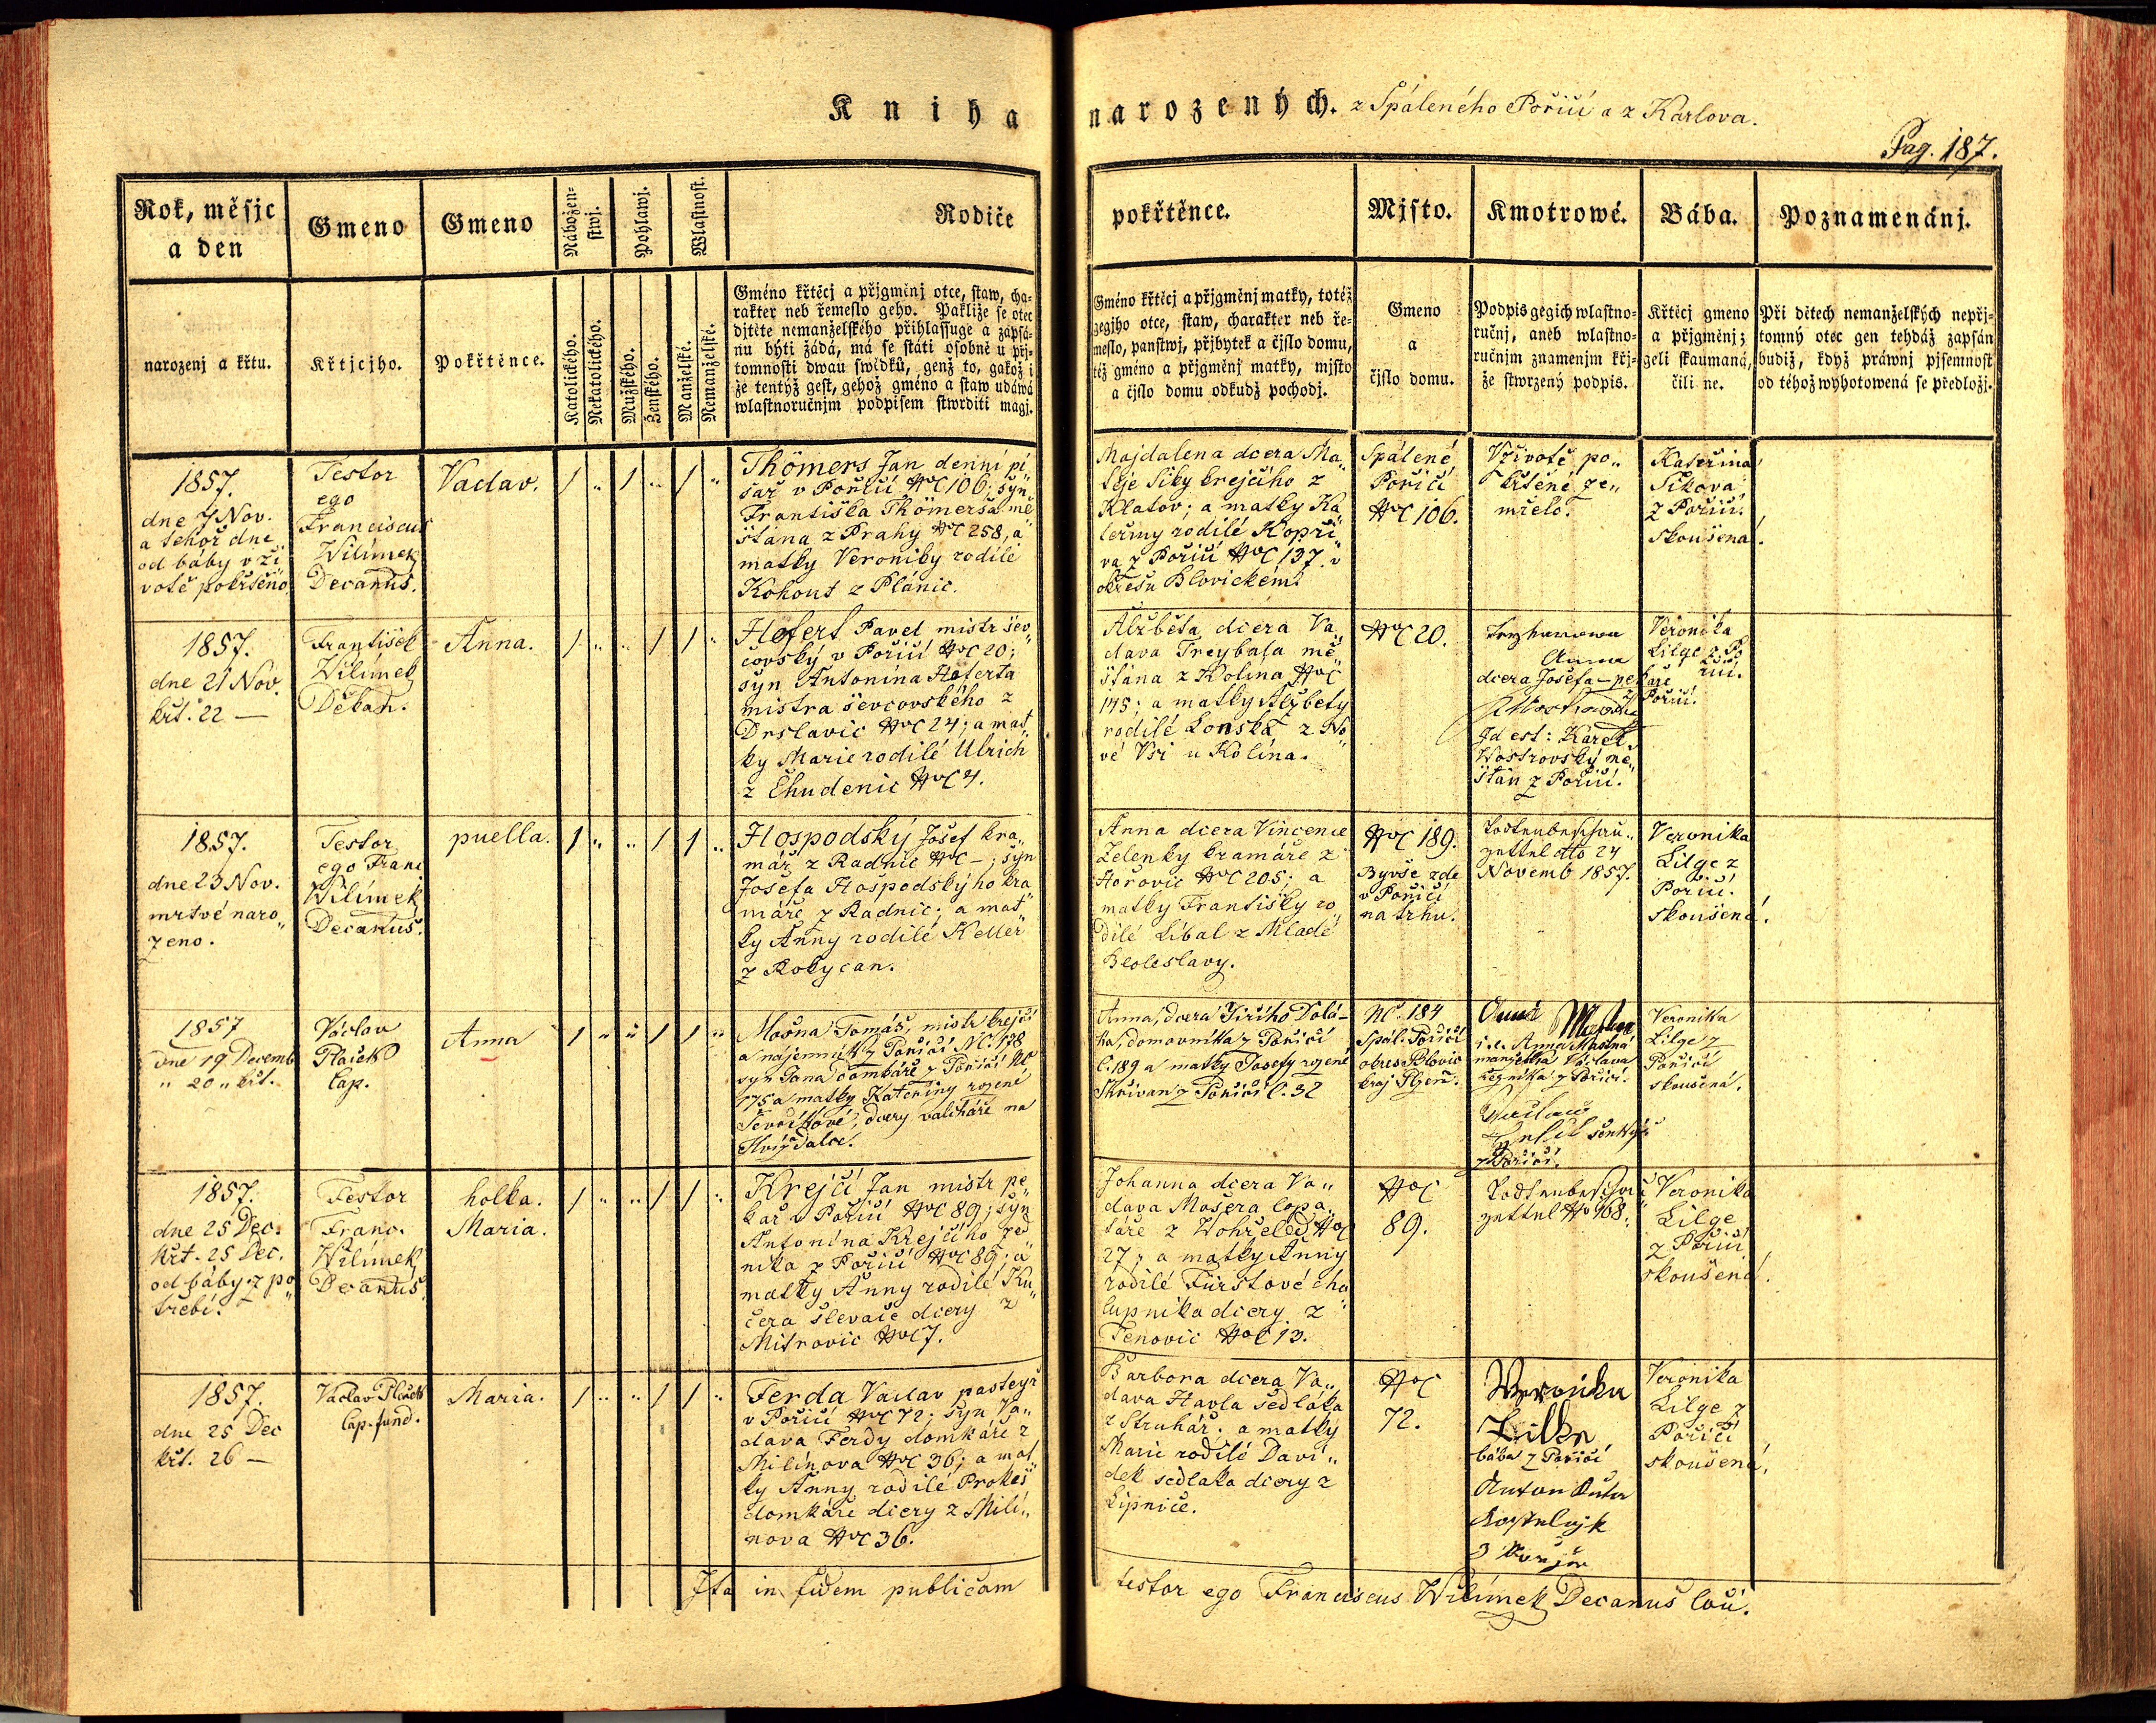 Kniha narozených. z Spáleného Poříčí a z Karlova.
Pag. 187.
Rok, měsjc
a den
Gmeno
Gmeno
Nábožen-
stwj.
Pohlawj.
Wlastnost.
Rodiče
pokřtěnce.
Mjsto.
Kmotrowé.
Bába.
Poznamenánj.
narozenj a křtu.
Křtjcjho.
Pokřtěnce.
Katolického.
Nekatolického.
Mužského.
Ženského.
Manželské.
Nemanželské.
Gméno křtěcj a přjgmenj otce, staw, cha-
rakter neb řemeslo geho. Pakliže se otec
djtěte nemanželského přihlassuge a zapsá-
nu býti žádá, má se státi osobně u přj-
tomnosti dwau swědků, genž to, gakož i
že tentýž gest, gehož gméno a staw udáwá
wlastnoručnjm podpisem stwrditi magj.
Gméno křtěcj a přjgmenj matky, totéž
gegjho otce, staw, charakter neb ře-
meslo, panstwj, přjbytek a čjslo domu,
též gméno a přjgmenj matky, mjsto
a čjslo domu odkudž pochodj.
Gmeno
a
čjslo domu.
Podpis gegich wlastno-
ručnj, aneb wlastno-
ručnjm znamenjm křj-
že stwrzený podpis.
Křtěcj gmeno
a přjgmenj;
geli skaumaná,
čili ne.
Při dětech nemanželských nepřj-
tomný otec gen tehdáž zapsán
budiž, když práwnj pjsemnost
od téhož wyhotowená se předložj.
1857.
dne 7 Nov.
a tehož dne
od báby v ži
votě pokřtěno
Testor
ego
Franciscus
Wilímek
Decanus.
Vaclav.
Thömers Jan denní pí
sař v Poříčí NC 106; syn
Františka Thömersa mě
šťana z Prahy NC 258, a
matky Veroniky rodilé
Kohout z Plánic.
Majdalena dcera Ma
těje Siky krejčího z
Klatov; a matky Ka
teřiny rodilé Kopři
va z Poříčí NC 137. v
okresu Blovickém.
Spálené
Poříčí
NC 106.
V životě po
křtěné ze
mřelo.
Kateřina
Sikova
z Poříčí.
skoušená.
1857.
dne 21 Nov.
křt. 22 —
František
Wilímek
Děkan.
Anna.
Hefert Pavel mistr šev
covský v Poříčí NC 20;
syn Antonína Heferta
mistra ševcovského z
Drslavic NC 24; a mat
ky Marie rodilé Ulrich
z Chudenic NC 4.
Alžběta dcera Va
clava Treybala mě
šťana z Kolína NC
145; a matky Alžbety
rodilé Lonská z No
vé Vsi u Kolína.
NC 20.
Anna
dcera Josefa pekaře
z Poříčí.
Id est: Karel
Wostrovský mě
šťan z Poříčí.
Veronika
Lilge z Po
říčí.
1857.
dne 23 Nov.
mrtvé naro
zeno.
Testor
ego Franc
Wilímek
Decanus.
puella.
Hospodský Josef kra
mář z Radnic NC —; syn
Josefa Hospodskýho kra
máře z Radnic; a mat
ky Anny rodilé Keller
z Rokycan.
Anna dcera Vincence
Zelenky kramáře z
Hořovic NC 205; a
matky Františky ro
dilé Líbal z Mladé
Boleslavy.
NC 189.
Byvše zde
v Poříčí
na trhu.
Todtenbeschau
zettel dto 24
Novemb 1857.
Veronika
Lilge z
Poříčí.
skoušená.
1857
dne 19 Decemb
" 20 " křt.
Václav
Plaček
Cap.
Anna
Mašna Tomáš, mistr krejčí
a nájemník z Poříčí NC. 178
syn Jana domkáře z Poříčí NC
175 a matky Kateřiny rozené
Ševčíkové, dcery valcháře na
Hvížďalce.
Anna, dcera Jiřího Dolá-
ka, domovníka z Poříčí
č. 189 a matky Josefy rozené
Skřivan z Poříčí č. 32
NC. 184
Spál. Poříčí
okres Blovic
kraj Plzeň.
Anna Mašna
i.e. Anna Mašná
manželka Václava
řezníka z Poříčí.
z Poříčí.
Veronika
Lilge z
Poříčí
skoušená.
1857.
dne 25 Dec.
křt. 25 Dec.
od báby z po
třebí.
Testor
Franc.
Wilímek
Decanus.
holka.
Maria.
Krejčí Jan mistr pe
kař v Poříčí NC 89; syn
Antonína Krejčího zed
níka z Poříčí NC 89; a
matky Anny rodilé Ku
čera slevače dcery z
Mitrovic NC 7.
Johanna dcera Va
clava Mošera lopa
táře z Wohřeled NC
27; a matky Anny
rodilé Fürstové cha
lupníka dcery z
Tenovic NC 13.
NC
89.
Todtenbeschau
zettel N 968.
Veronika
Lilge
z Poříčí
skoušená.
1857.
dne 25 Dec
křt. 26 —
Václav Plaček
Cap. fund.
Maria.
Ferda Vaclav pasteyř
v Poříčí NC 72; syn Va
clava Ferdy domkáře z
Milínova NC 36; a mat
ky Anny rodilé Prokeš
domkáře dcery z Milí
nova NC 36.
Barbora dcera Va
clava Havla sedláka
z Struhář; a matky
Marie rodilé Davi
dek sedlaka dcery z
Lipnice.
NC
72.
Veronika
Lilke
bába z Poříčí
Anton
Veronika
Lilge z
Poříčí
skoušená.
Ita in fidem publicam testor ego Franciscus Wilímek Decanus loci.